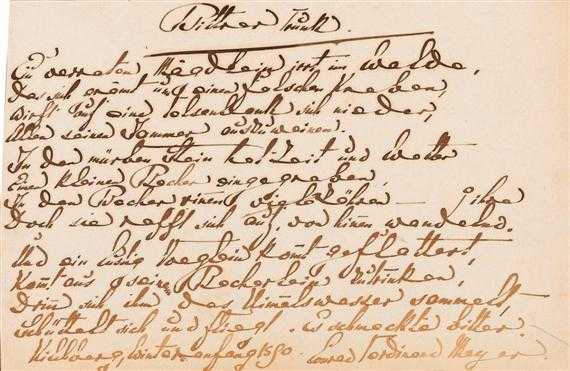 Bittrer Trunk.
Ein verraten Mägdlein irrt im Walde,
Das sich grämt um einen falschen Knaben,
Wirft auf eine Felsenbank sich nieder,
Allen seinen Jammer auszuweinen.
In den mürben Stein hat Zeit und Wetter
Einen kleinen Becher eingegraben,
In den Becher rinnen viele Zähren — ihre
Doch sie rafft sich auf, von hinnen wandernd.
Und ein lustig Vöglein komt geflattert,
Komt aus seinem Becherlein zu trinken,
Drin sich ihm das Himmelswasser sammelt,
Schüttelt sich und fliegt. Es schmeckte bitter.
Kilchberg, Winteranfang 1890. Conrad Ferdinand Meyer.